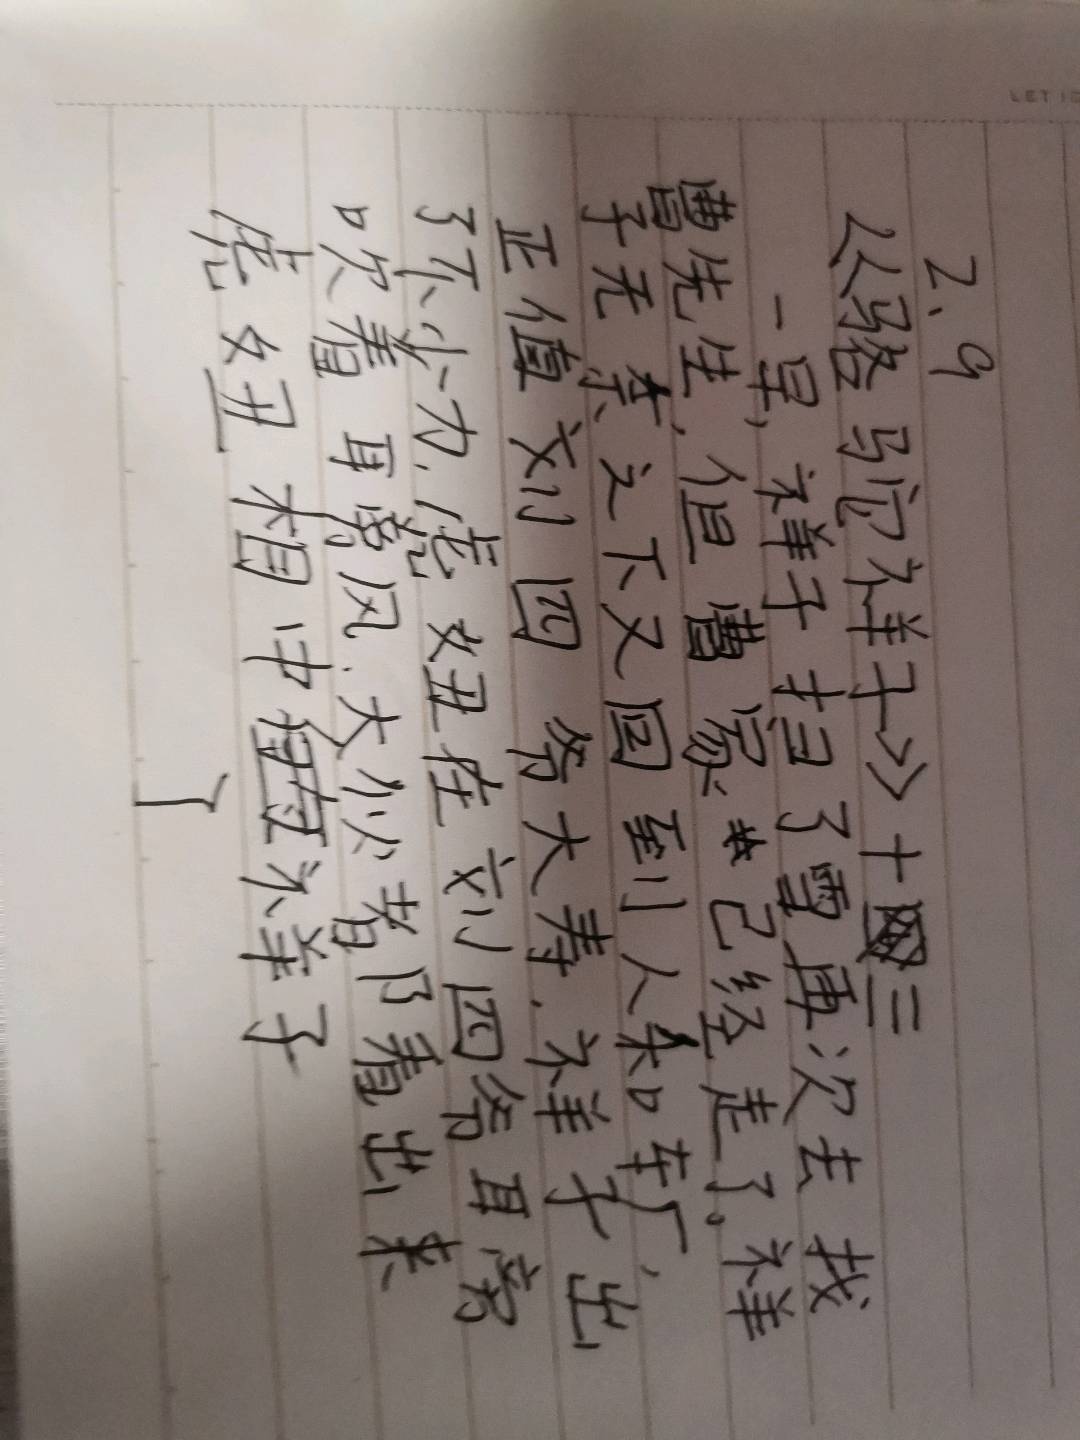 LET
2.9
《骆驼祥子》十三
一早,祥子扫了雪再次去找
曹先生,但曹家已经走了。祥
子无奈之下又回到人和车厂,
正值刘四爷大寿.祥子出
了不少力.虎妞在刘四爷耳旁
吹着耳旁风.大伙都看出来
虎妞相中祥子